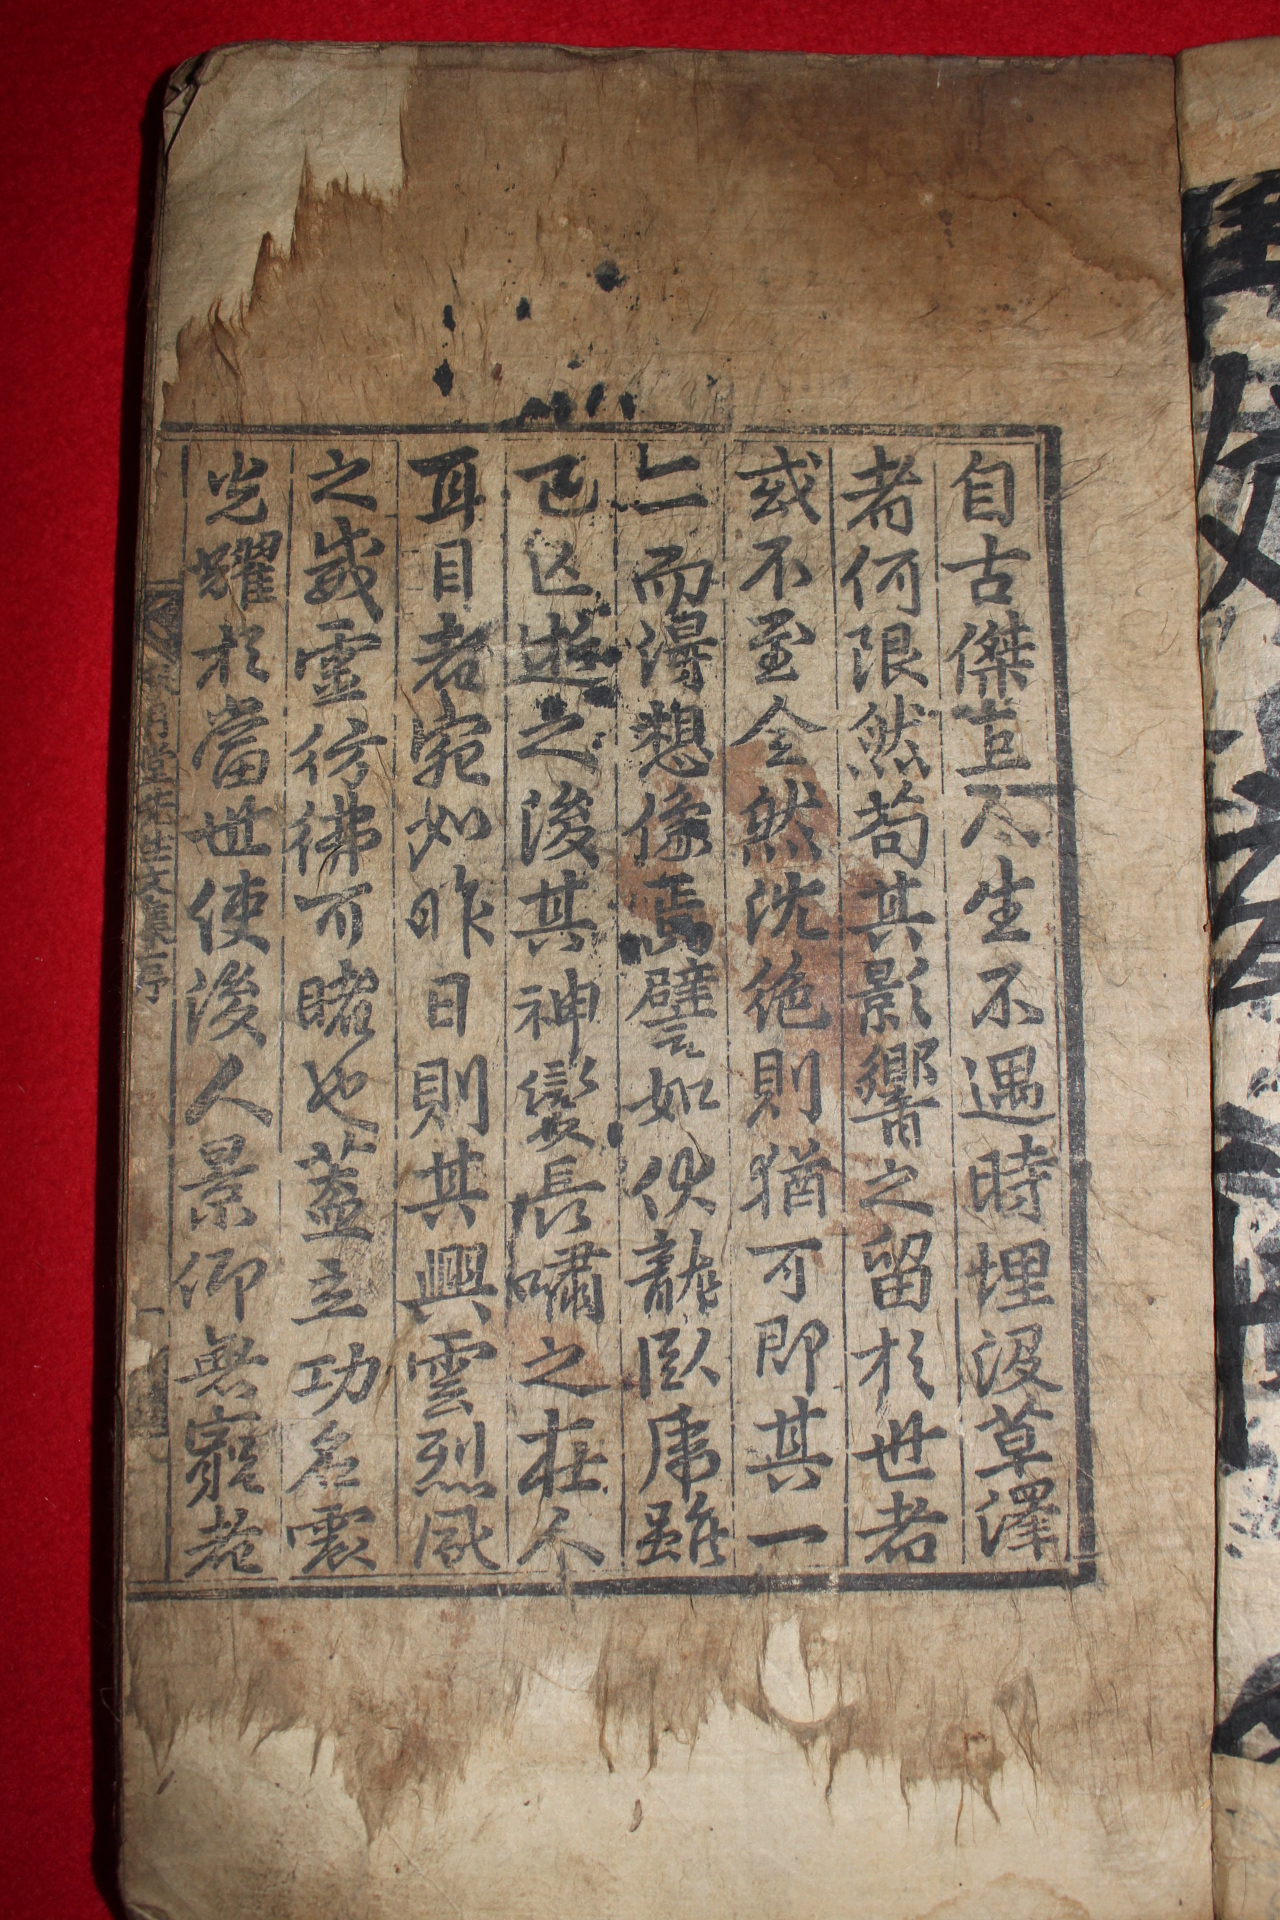 自古傑人生不遇時埋沒草澤
者何限然苟其影響之留扵世者
或不至全然沈絶則猶可即其一
二而得想像焉譬如伏龍臥虎雖
已亾逝之後其神變長嘯之在人
耳目者宛如昨日則其興雲烈風
之威靈彷彿可睹也蓋立功名震
光耀扵當世使後人景仰無窮者
月堂先生文集序